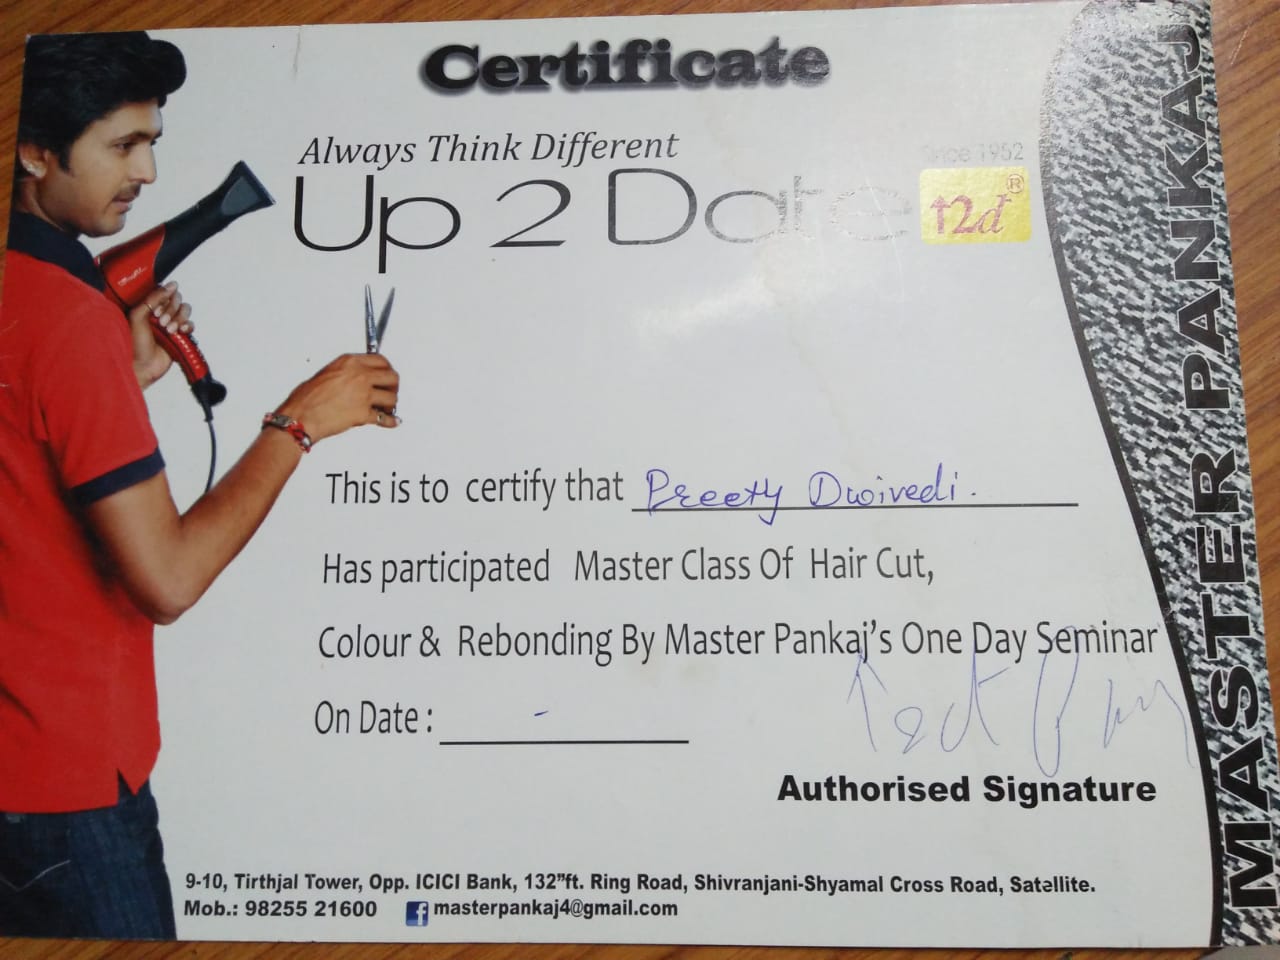 Certificate
Always Think Different
Up 2 Date
Since 1952
12d®
This is to certify that Preety Dwivedi.
Has participated Master Class Of Hair Cut,
Colour & Rebonding By Master Pankaj's One Day Seminar
On Date : -
Authorised Signature
9-10, Tirthjal Tower, Opp. ICICI Bank, 132"ft. Ring Road, Shivranjani-Shyamal Cross Road, Satellite.
Mob.: 98255 21600 f masterpankaj4@gmail.com
MASTER PANKAJ